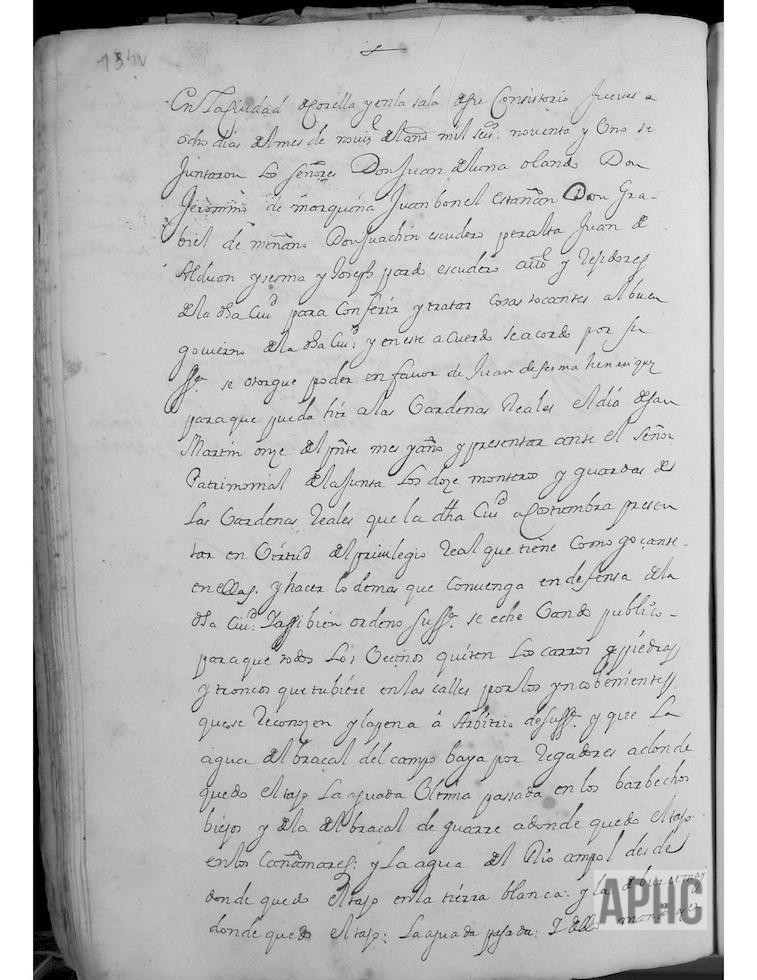 154v
En la Ciudad de Corella y en la sala de su Consistorio Jueves a
ocho dias del mes de noviẽ del año mil seisˢ. noventa y Uno se
Juntaron los Señores Don Juan de luna olando Don
Jeronimo de morquona Juan bonel estañon Don Gra-
biel de miñano Don Juachin escudero peralta Juan de
Alduan y sesma y Joseph pardo escudero y Rejidores
de la dha Ciuᵈ para Conferir y tratar cosas tocantes al buen
govierno de la dha Ciuᵈ: y en este acuerdo se acordo por su
Sˢᵃ. se otorgue poder en favor de Juan de sesma henrriquez
para que pueda hir a las Bardenas Reales el dia de san
Martin onze del pñte mes y año y presentar ante el señor
Patrimonial de la Junta los doze monteros y guardas de
las Bardenas Reales que la dha Ciuᵈ acostumbra presen
tar en Virtud del privilegio Real que tiene Como goçante.
en ellas. y hacer lo demas que Convenga en defensa de la
dha Ciuᵈ: Tanbien ordeno su Sˢᵃ. se eche Bando publico-
para que todos los Vecinos quiten los carros y piedras
y troncos que tubiere en las calles por los yncobenientes
que se Reconozen y la pena â Arbitrio de su Sˢᵃ. y que la
agua del braçal del campo baya por Regadores a donde
quedo el tajo la aguada Ultima passada en los barbechos
biejos y de la del braçal de guarre adonde quedo el tajo
en los Cañamares: y la agua del Rio ampol desde
donde quedo el tajo en la tierra blanca: y la de
donde quedo el tajo: la aguada pasada:
APHC